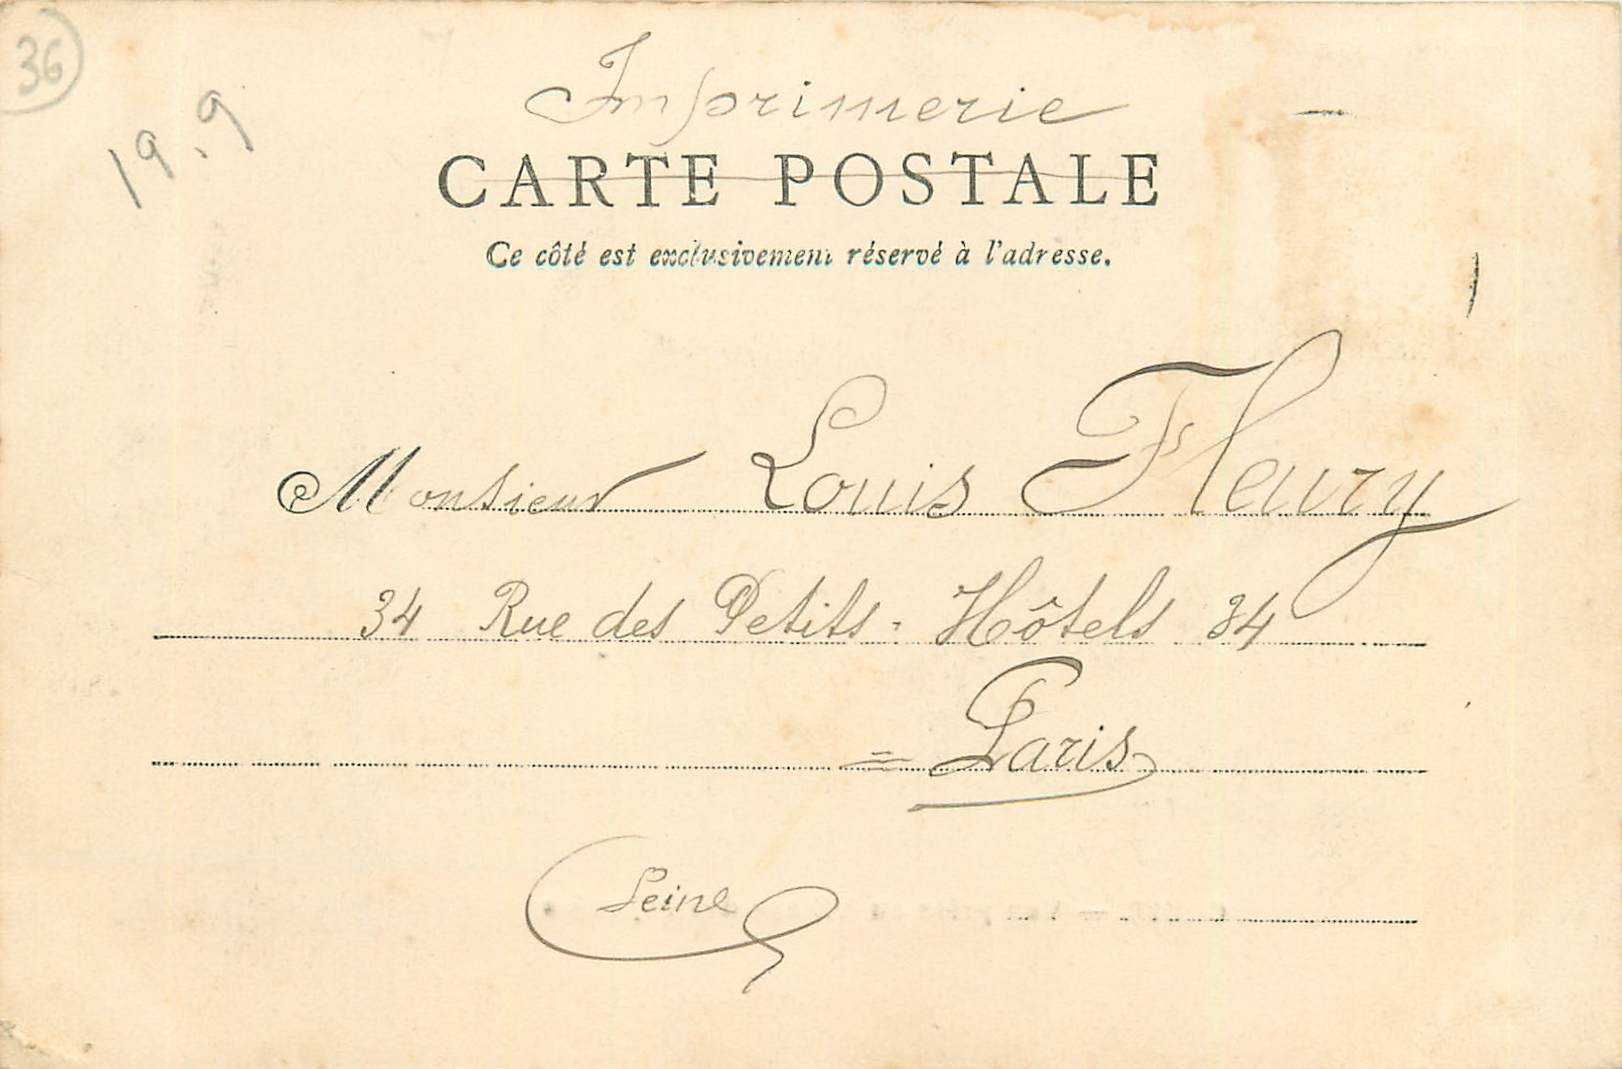 36
19.9
Imprimerie
CARTE POSTALE
Ce côté est exclusivement réservé à l'adresse.
Monsieur Louis Fleury
34 Rue des Petits-Hôtels 34
= Paris
Seine